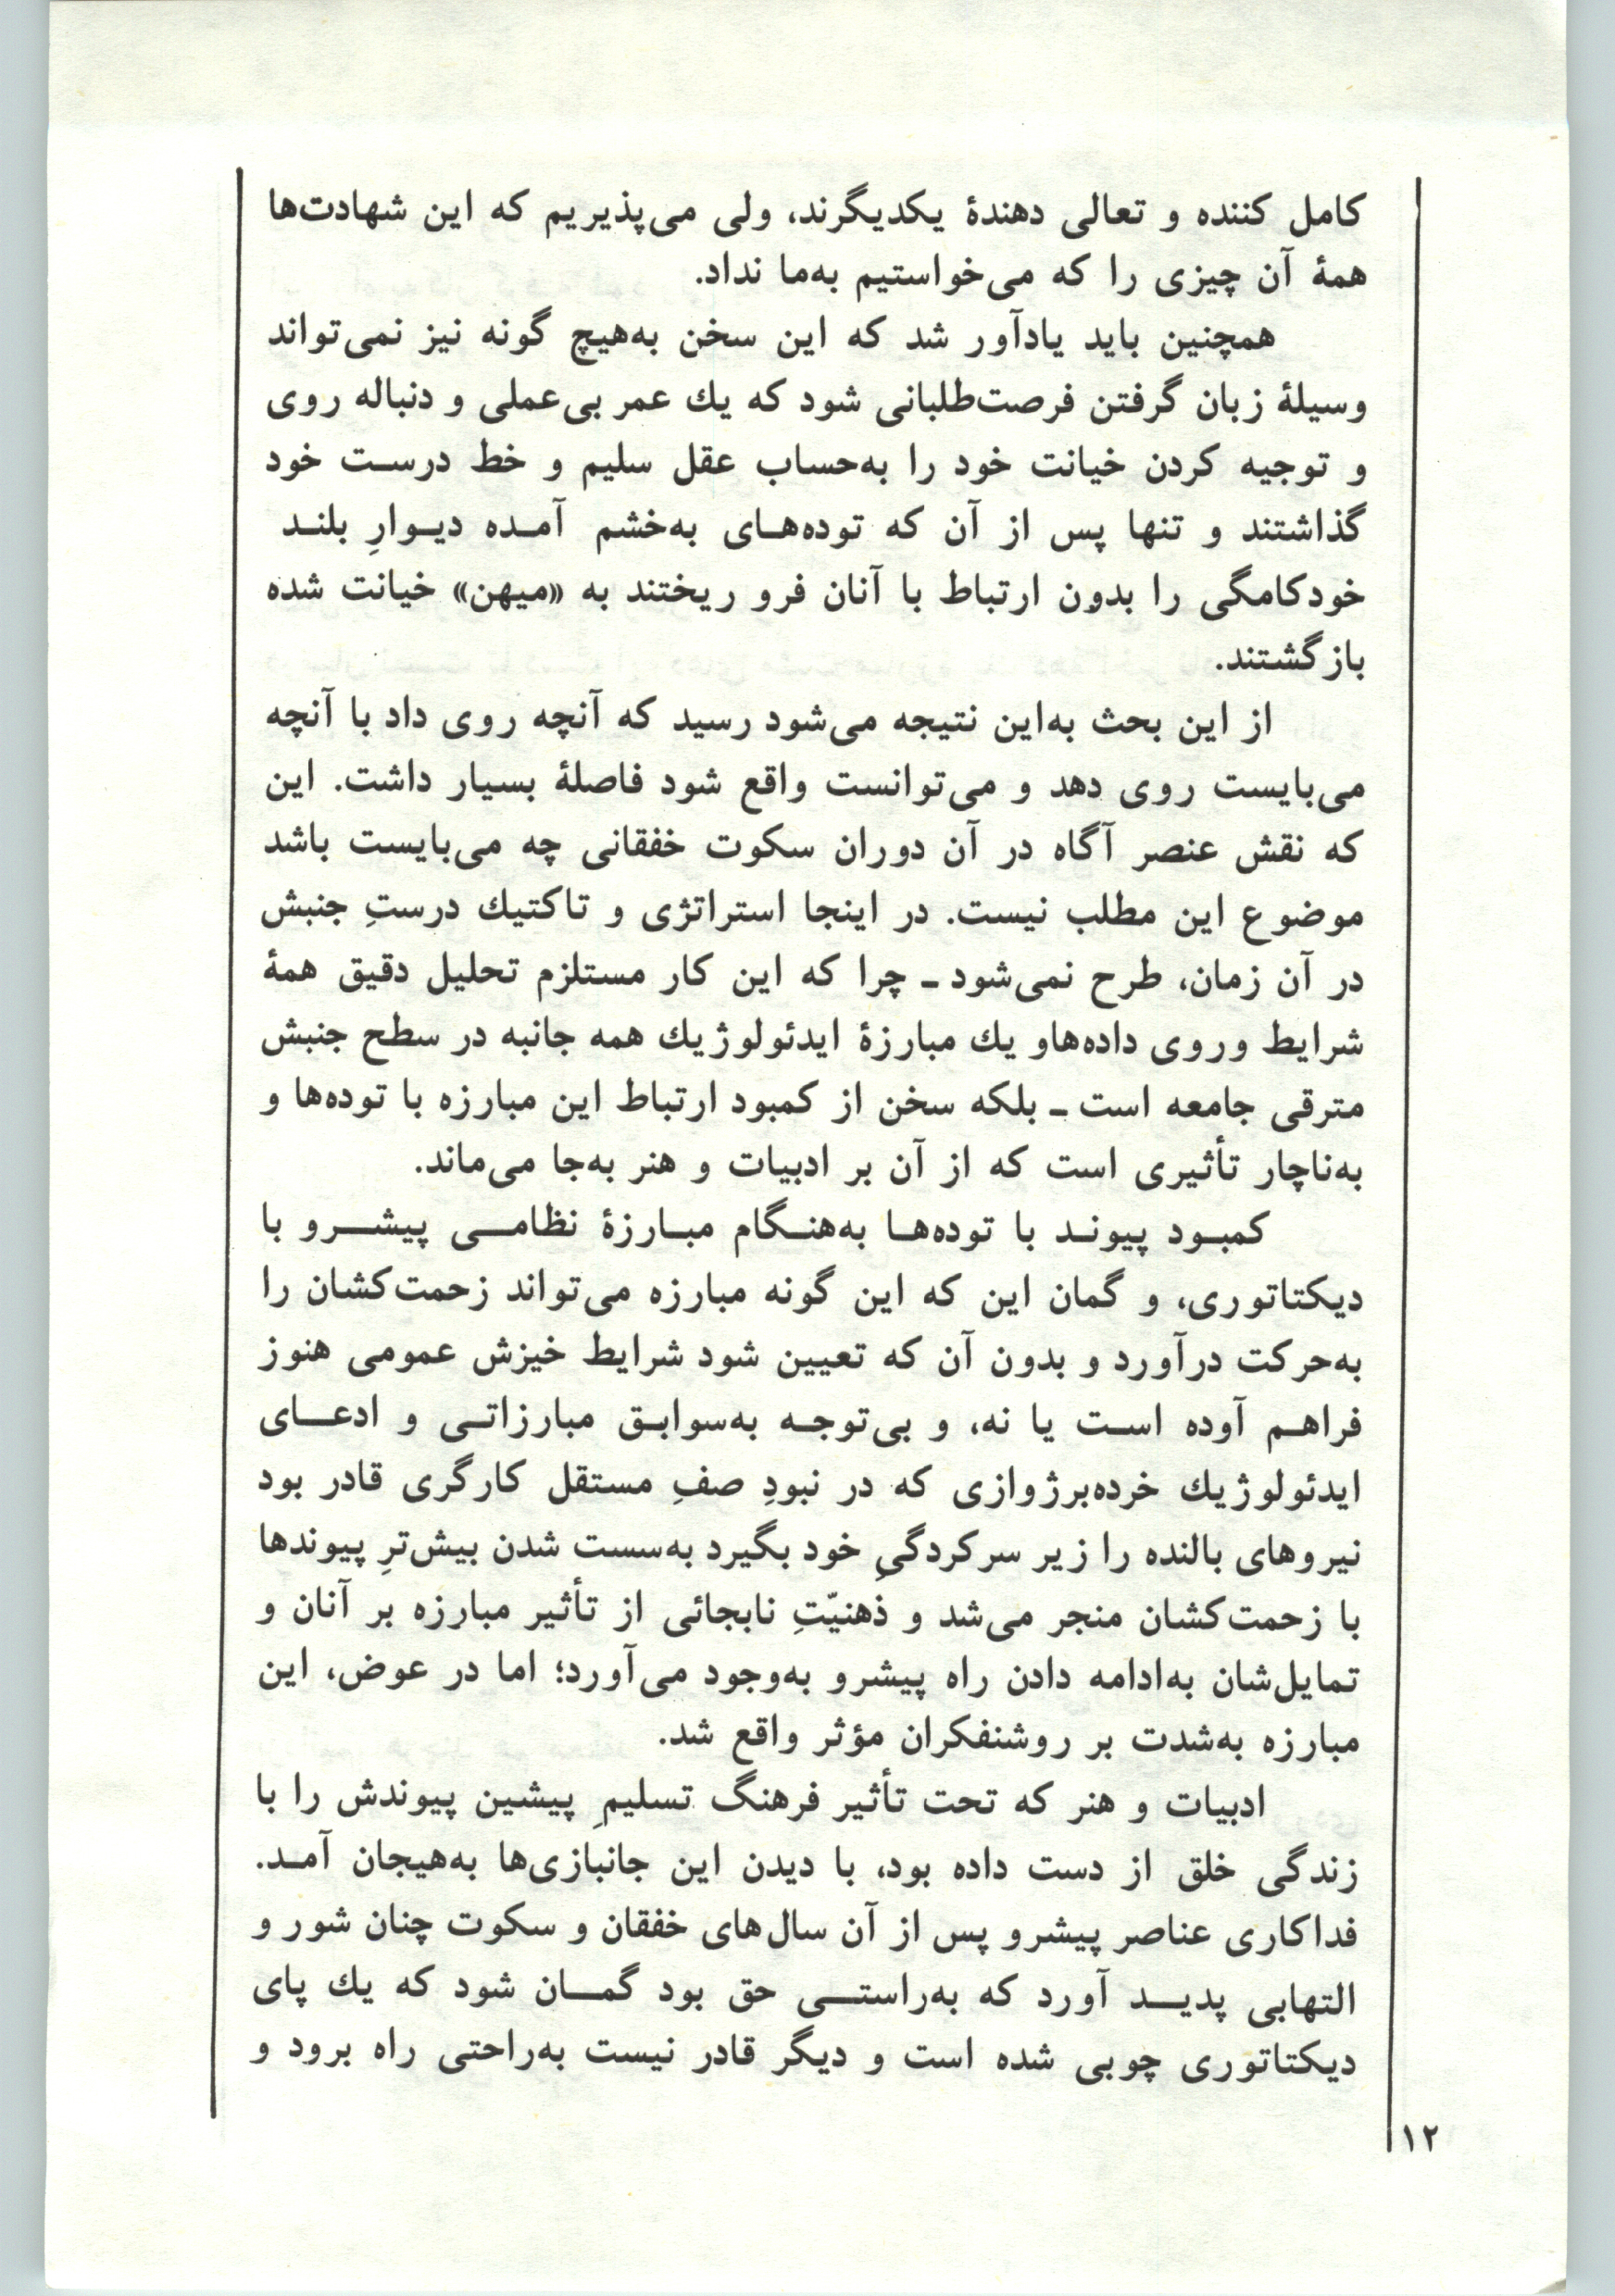 کامل کننده و تعالی دهندهٔ یکدیگرند، ولی می‌پذیریم که این شهادت‌ها
همهٔ آن چیزی را که می‌خواستیم به‌ما نداد.
همچنین باید یادآور شد که این سخن به‌هیچ گونه نیز نمی‌تواند
وسیلهٔ زبان گرفتن فرصت‌طلبانی شود که یك عمر بی‌عملی و دنباله روی
و توجیه کردن خیانت خود را به‌حساب عقل سلیم و خط درست خود
گذاشتند و تنها پس از آن که توده‌های به‌خشم آمده دیوارِ بلند
خودکامگی را بدون ارتباط با آنان فرو ریختند به «میهن» خیانت شده
بازگشتند.
از این بحث به‌این نتیجه می‌شود رسید که آنچه روی داد با آنچه
می‌بایست روی دهد و می‌توانست واقع شود فاصلهٔ بسیار داشت. این
که نقش عنصر آگاه در آن دوران سکوت خفقانی چه می‌بایست باشد
موضوع این مطلب نیست. در اینجا استراتژی و تاکتیك درستِ جنبش
در آن زمان، طرح نمی‌شود ـ چرا که این کار مستلزم تحلیل دقیق همهٔ
شرایط وروی داده‌هاو یك مبارزهٔ ایدئولوژیك همه جانبه در سطح جنبش
مترقی جامعه است ـ بلکه سخن از کمبود ارتباط این مبارزه با توده‌ها و
به‌ناچار تأثیری است که از آن بر ادبیات و هنر به‌جا می‌ماند.
کمبود پیوند با توده‌ها به‌هنگام مبارزهٔ نظامی پیشرو با
دیکتاتوری، و گمان این که این گونه مبارزه می‌تواند زحمت‌کشان را
به‌حرکت درآورد و بدون آن که تعیین شود شرایط خیزش عمومی هنوز
فراهم آوده است یا نه، و بی‌توجه به‌سوابق مبارزاتی و ادعای
ایدئولوژیك خرده‌برژوازی که در نبودِ صفِ مستقل کارگری قادر بود
نیروهای بالنده را زیر سرکردگیِ خود بگیرد به‌سست شدن بیش‌ترِ پیوندها
با زحمت‌کشان منجر می‌شد و ذهنیّتِ نابجائی از تأثیر مبارزه بر آنان و
تمایل‌شان به‌ادامه دادن راه پیشرو به‌وجود می‌آورد؛ اما در عوض، این
مبارزه به‌شدت بر روشنفکران مؤثر واقع شد.
ادبیات و هنر که تحت تأثیر فرهنگ تسلیمِ پیشین پیوندش را با
زندگی خلق از دست داده بود، با دیدن این جانبازی‌ها به‌هیجان آمد.
فداکاری عناصر پیشرو پس از آن سال‌های خفقان و سکوت چنان شور و
التهابی پدید آورد که به‌راستی حق بود گمان شود که یك پای
دیکتاتوری چوبی شده است و دیگر قادر نیست به‌راحتی راه برود و
۱۲